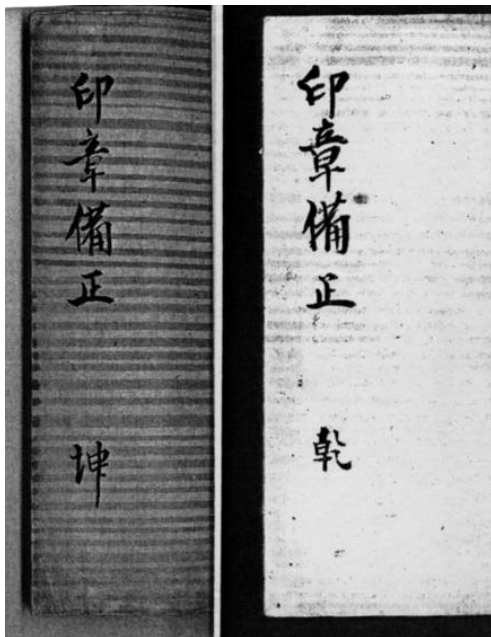 印章備正 乾
印章備正 坤